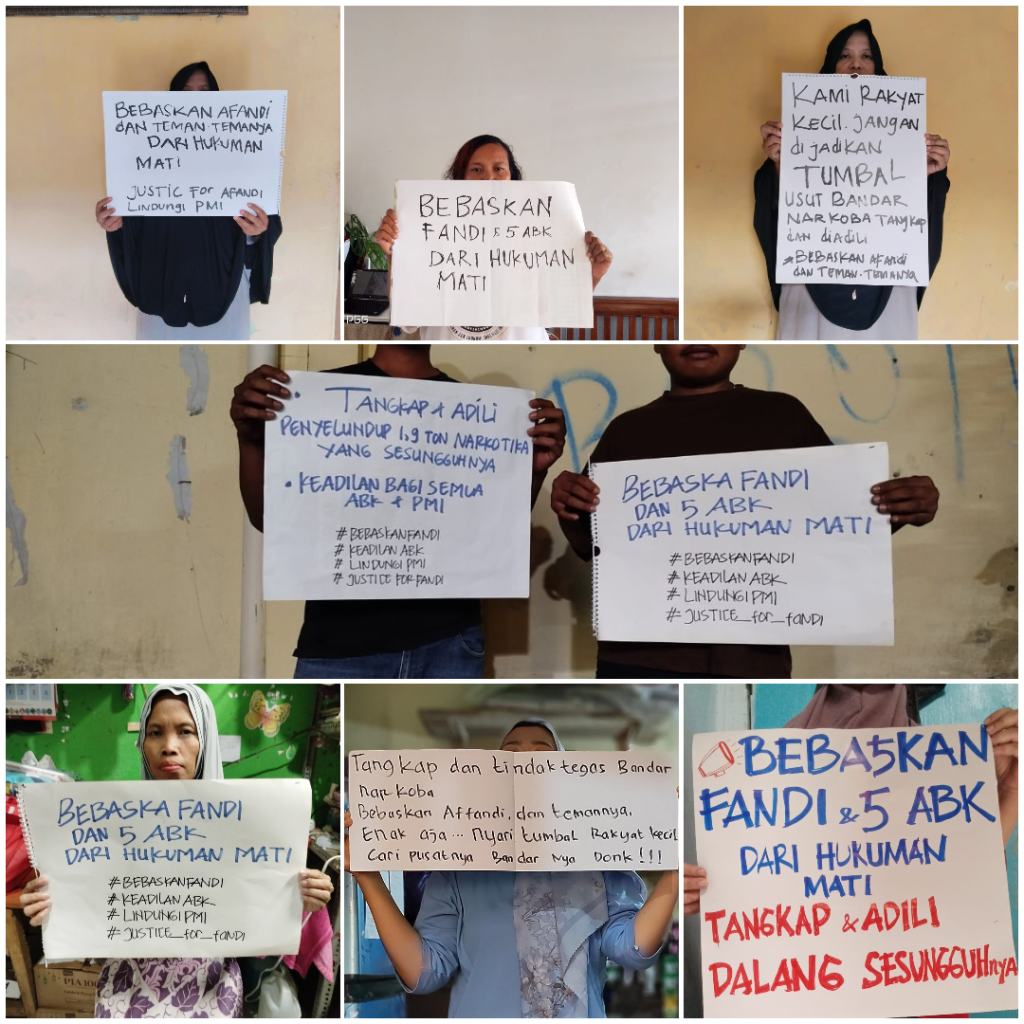 BEBASKAN AFANDI
dAN TEMAN-TEMANYA
DARI HUKUMAN
MATI
JUSTIC FOR AFANDI
LINDUNGI PMI
BEBASKAN
FANDI & 5 ABK
DARI HUKUMAN
MATI
KAMI RAKYAT
KECIL. JANGAN
di JADIKAN
TUMBAL
USUT BANDAR
NARKOBA TANGKAP
dAN diAdili
*BEBASKAN AFANdi
dAN TEMAN-TEMANYA
• TANGKAP & ADILI
PENYELUNDUP 1,9 TON NARKOTIKA
YANG SESUNGGUHNYA
• KEADILAN BAGI SEMUA
ABK & PMI
# BEBASKANFANDI
# KEADILAN ABK
# LINDUNGI PMI
# JUSTICE FOR FANDI
BEBASKA FANDI
DAN 5 ABK
DARI HUKUMAN MATI
# BEBASKANFANDI
# KEADILAN ABK
# LINDUNGI PMI
# JUSTICE_for_fANDI
BEBASKA FANDI
DAN 5 ABK
DARI HUKUMAN MATI
# BEBASKANFANDI
# KEADILAN ABK
# LINDUNGI PMI
# JUSTICE_for_fANDI
Tangkap dan tindak tegas Bandar
narkoba
Bebaskan Affandi, dan temannya.
Enak aja... Nyari tumbal Rakyat kecil
Cari pusatnya Bandar Nya Donk!!!
BEBASKAN
FANDI & 5 ABK
DARI HUKUMAN
MATI
TANGKAP & ADILI
DALANG SESUNGGUHnYA